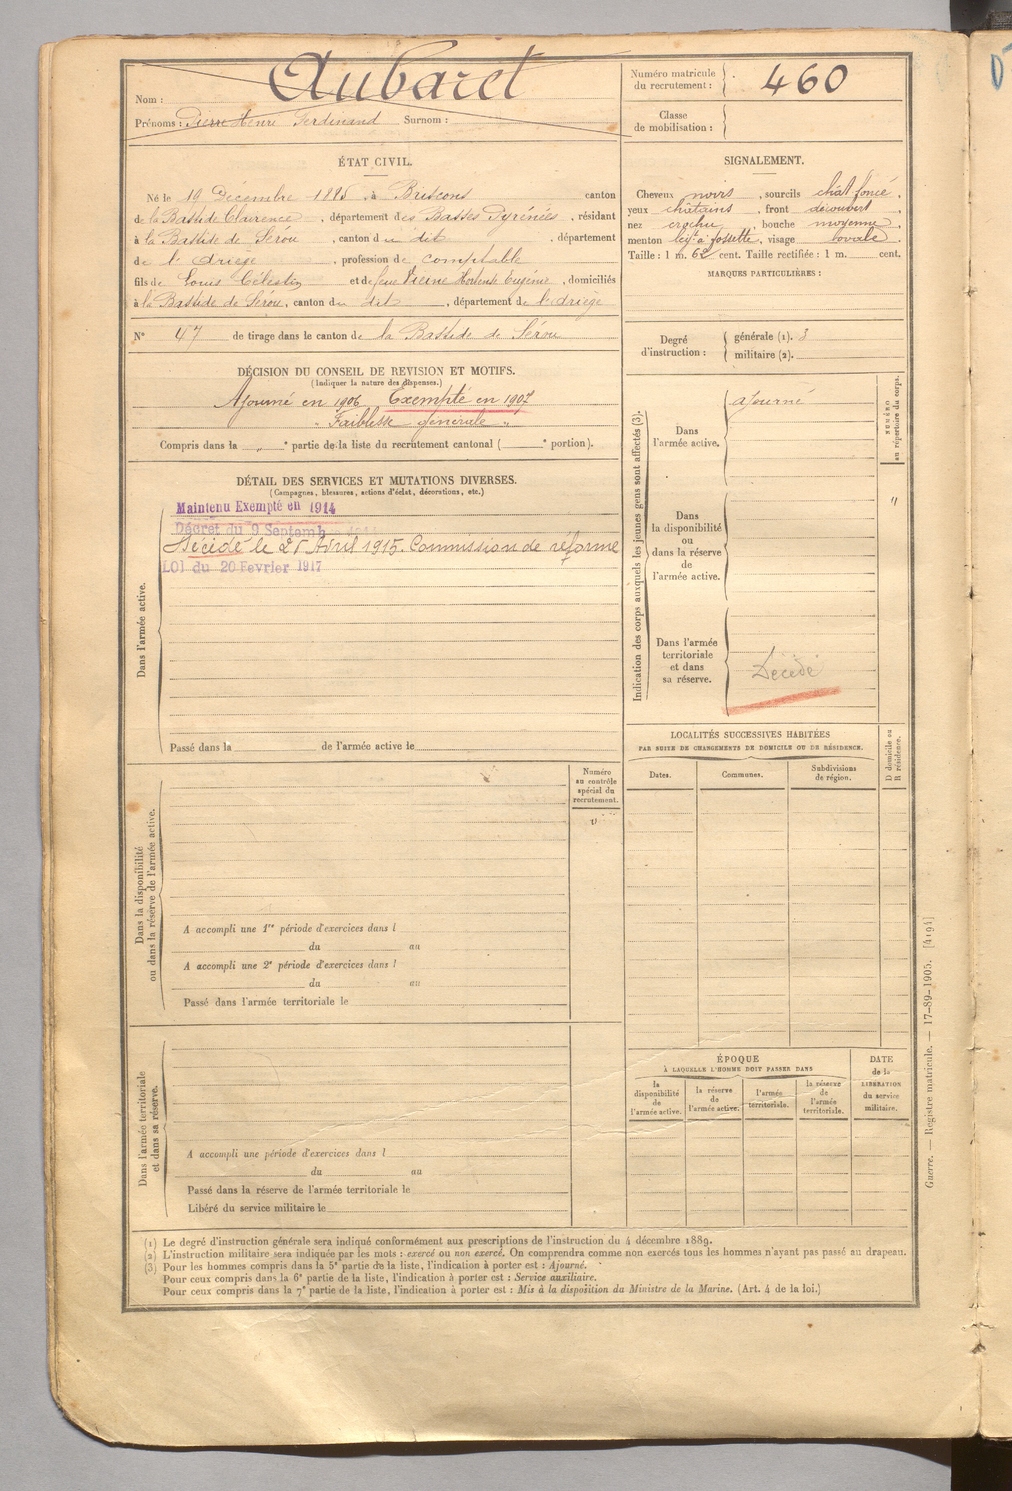 Nom : Aubaret
Prénoms : Pierre Henri Ferdinand Surnom :
Numéro matricule du recrutement : 460
Classe de mobilisation :
ÉTAT CIVIL.
Né le 19 Décembre 1885, à Briscous canton
de la Bastide Clairence, département des Basses Pyrénées, résidant
à la Bastide de Sérou, canton du dit, département
de l'Ariège, profession de comptable
fils de Louis Célestin et de feue Hortense Eugénie, domiciliés
à la Bastide de Sérou, canton du dit, département de l'Ariège
N° 47 de tirage dans le canton de la Bastide de Sérou
DÉCISION DU CONSEIL DE REVISION ET MOTIFS.
(Indiquer la nature des dispenses.)
Ajourné en 1906 Exempté en 1907
" Faiblesse générale "
Compris dans la " e partie de la liste du recrutement cantonal ( e portion).
DÉTAIL DES SERVICES ET MUTATIONS DIVERSES.
(Campagnes, blessures, actions d'éclat, décorations, etc.)
Dans l'armée active.
Maintenu Exempté en 1914
Décret du 9 Septembre 1914
Décédé le 25 Avril 1915. Commission de réforme
LOI du 20 Fevrier 1917
Passé dans la de l'armée active le
Dans la disponibilité
ou dans la réserve de l'armée active.
Numéro
au contrôle
spécial du
recrutement.
A accompli une 1re période d'exercices dans l
du au
A accompli une 2e période d'exercices dans l
du au
Passé dans l'armée territoriale le
Dans l'armée territoriale
et dans sa réserve.
A accompli une période d'exercices dans l
du au
Passé dans la réserve de l'armée territoriale le
Libéré du service militaire le
SIGNALEMENT.
Cheveux noirs, sourcils chat foncé,
yeux chatains, front découvert,
nez crochu, bouche moyenne,
menton à fossette, visage ovale.
Taille : 1 m. 62 cent. Taille rectifiée : 1 m. cent.
MARQUES PARTICULIÈRES :
Degré d'instruction :
générale (1). 3
militaire (2).
Indication des corps auxquels les jeunes gens sont affectés (3).
NUMÉRO
au répertoire du corps.
Dans
l'armée active.
ajourné
"
Dans
la disponibilité
ou
dans la réserve
de
l'armée active.
Dans l'armée
territoriale
et dans
sa réserve.
Décédé
LOCALITÉS SUCCESSIVES HABITÉES
PAR SUITE DE CHANGEMENTS DE DOMICILE OU DE RÉSIDENCE.
Dates. Communes. Subdivisions de région.
D domicile ou
R résidence.
ÉPOQUE
À LAQUELLE L'HOMME DOIT PASSER DANS
la disponibilité de l'armée active.
la réserve de l'armée active.
l'armée territoriale.
la réserve de l'armée territoriale.
DATE
de la
LIBÉRATION
du service
militaire.
(1) Le degré d'instruction générale sera indiqué conformément aux prescriptions de l'instruction du 4 décembre 1889.
(2) L'instruction militaire sera indiquée par les mots : exercé ou non exercé. On comprendra comme non exercés tous les hommes n'ayant pas passé au drapeau.
(3) Pour les hommes compris dans la 5e partie de la liste, l'indication à porter est : Ajourné.
Pour ceux compris dans la 6e partie de la liste, l'indication à porter est : Service auxiliaire.
Pour ceux compris dans la 7e partie de la liste, l'indication à porter est : Mis à la disposition du Ministre de la Marine. (Art. 4 de la loi.)
Guerre. — Registre matricule. — 17-89-1905. [4194]